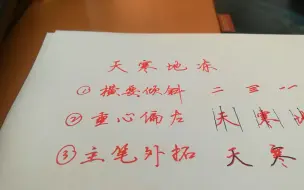 天寒地冻
①横画倾斜 二 三 一
②重心偏左 天 寒
③主笔外拓 天 寒